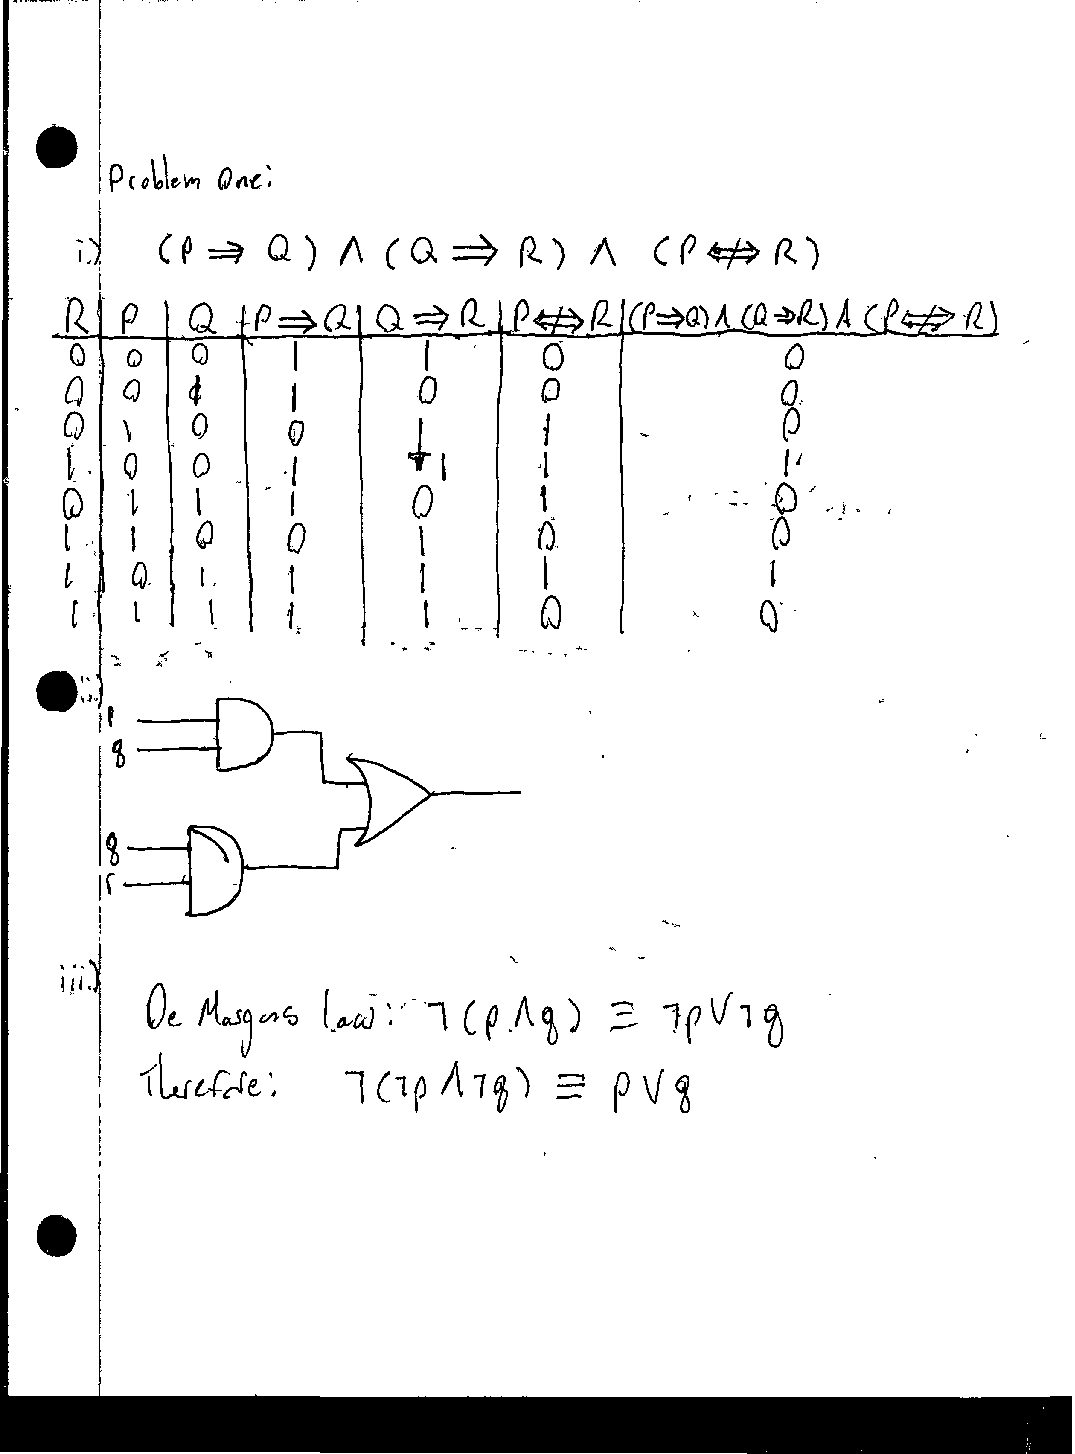 Problem One:
i.) (P ⇒ Q) ∧ (Q ⇒ R) ∧ (P ⇎ R)
R P Q P ⇒ Q Q ⇒ R P ⇎ R (P ⇒ Q) ∧ (Q ⇒ R) ∧ (P ⇎ R)
0 0 0 1 1 0 0
0 0 1 1 0 0 0
0 1 0 0 1 1 0
1 0 0 1 1 1 1
0 1 1 1 0 1 0
1 1 0 0 1 0 0
1 0 1 1 1 1 1
1 1 1 1 1 0 0
ii.)
q
q
r
iii.)
De Morgans law: ¬(p ∧ q) ≡ ¬p ∨ ¬q
Therefore: ¬(¬p ∧ ¬q) ≡ p ∨ q